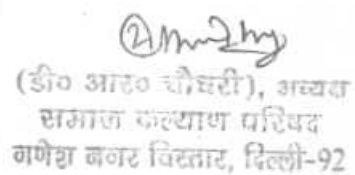 (डी० आर० चौधरी), अध्यक्ष
समाज कल्याण परिषद
गणेश नगर विस्तार, दिल्ली-92